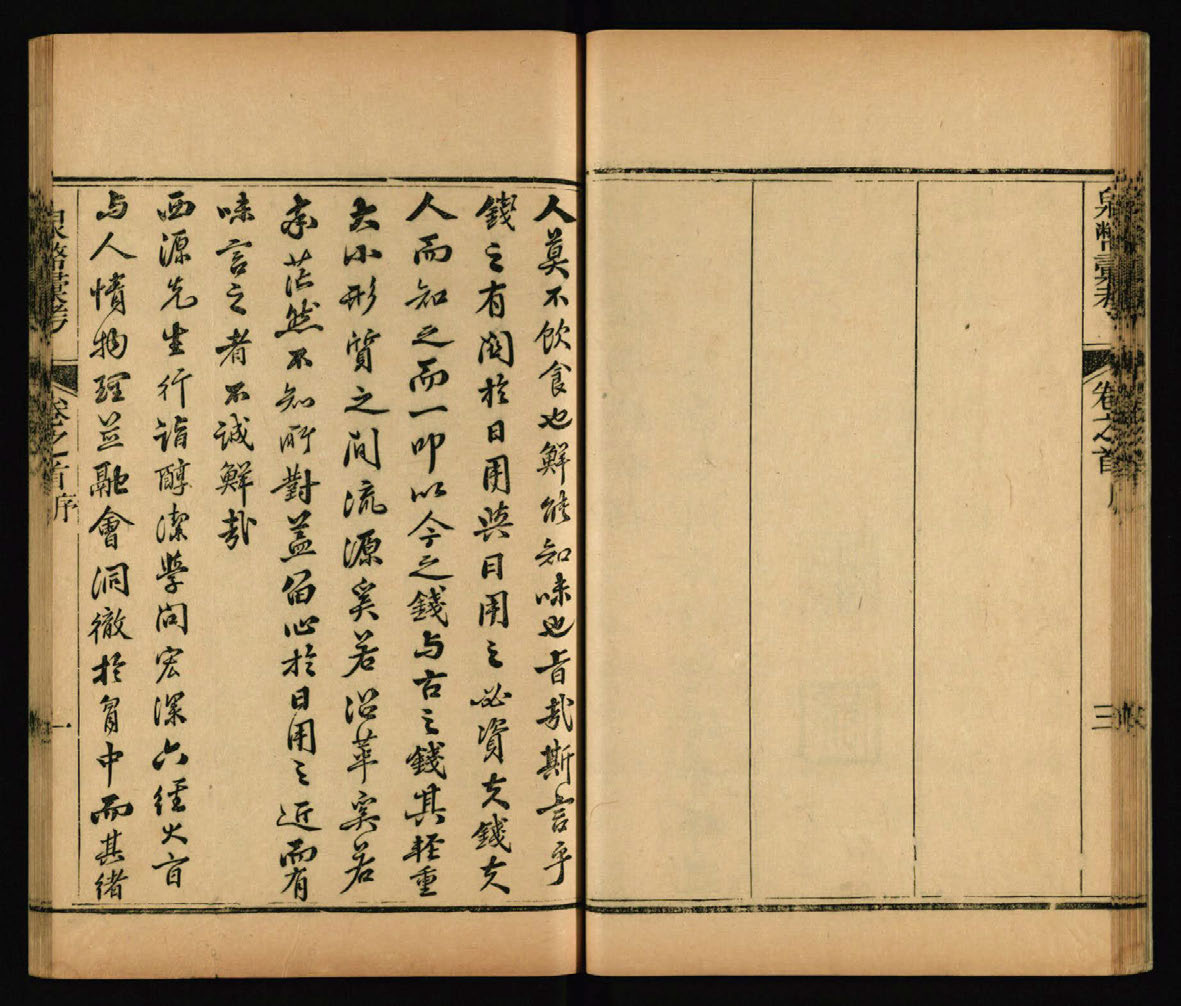 泉幣彙考 卷之首 序 三
人莫不飲食也鮮能知味也旨哉斯言乎
錢之有関於日用與日用之必資夫錢夫
人而知之而一叩以今之錢与古之錢其輕重
大小形質之間流源奚若沿革奚若
茫然不知所對蓋留心於日用之近而有
味言之者不誠鮮哉
西源先生行詣醇潔學問宏深六經大旨
与人情物理並融會洞徹於胷中而其緒
泉幣彙考 卷之首 序 一